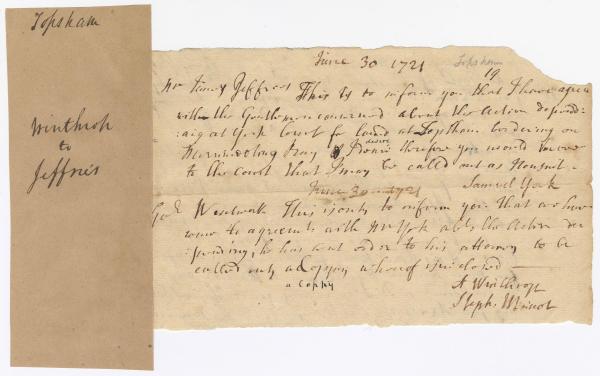 Topsham
Winthrop
to
Jeffries
June 30 1721
Topsham
19
Mr Jeffres This is to inform you that I have agreed
with the Gentlemen concerned about the Action depend
:ing at York Court for land at Topsham bordering on
Merrimeeting Bay I desire therefore you would
to the Court that I may be called out as Nonsuit
Samuel York
June 30 1721
This is only to inform you that we have
come to agreements with Mr York abt the Action de
:pending, he has sent order to his attorney to be
called out, a Coppy whereof is inclosed
a Coppy
A Winthrop
Steph: Minot